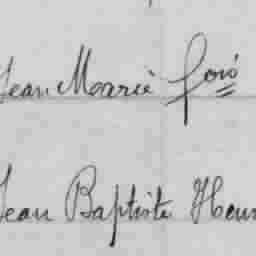 Jean Marie fois
Jean Baptiste Henri